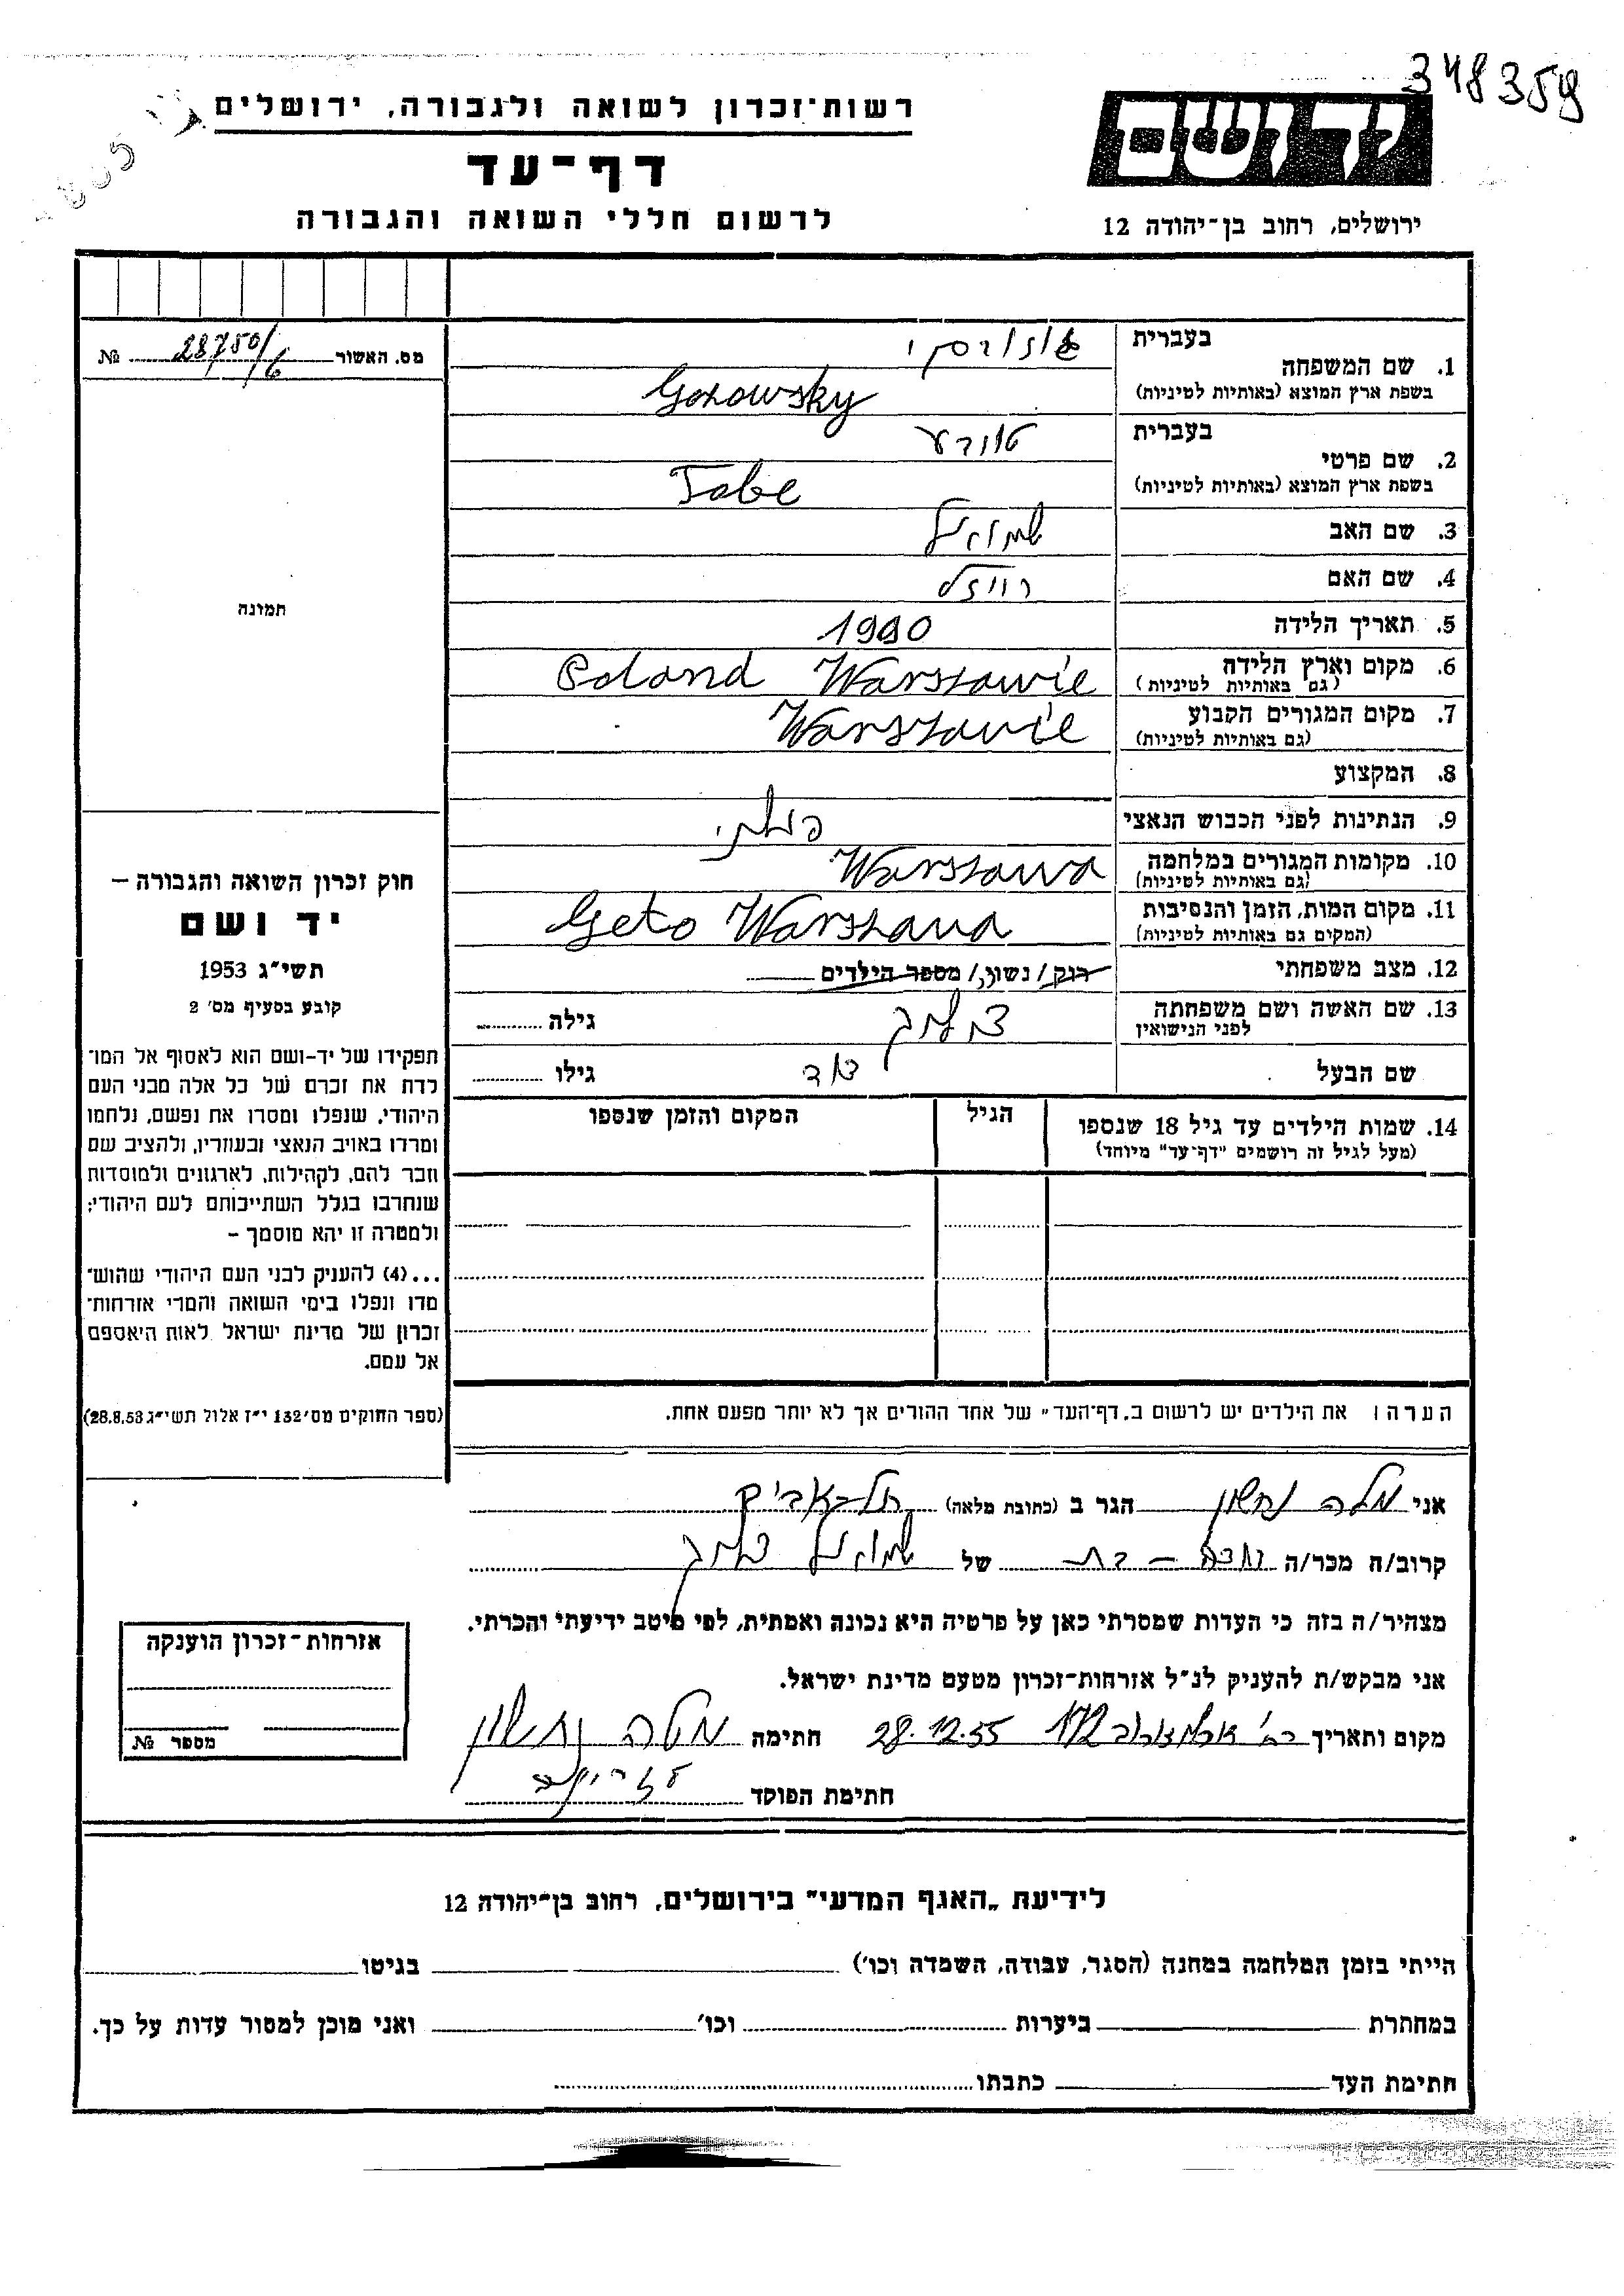 348359
רשות־זכרון לשואה ולגבורה, ירושלים
דף־עד
לרשום חללי השואה והגבורה
יד ושם
ירושלים, רחוב בן־יהודה 12
מס. האשור 28750/6 №
בעברית
1. שם המשפחה
בשפת ארץ המוצא (באותיות לטיניות) Gozowsky
בעברית
2. שם פרטי
בשפת ארץ המוצא (באותיות לטיניות) Tobe
3. שם האב שמואל
4. שם האם רויזל
5. תאריך הלידה
6. מקום וארץ הלידה Warszawie Poland
(גם באותיות לטיניות)
7. מקום המגורים הקבוע Warszawie
(גם באותיות לטיניות)
8. המקצוע
9. הנתינות לפני הכבוש הנאצי
10. מקומות המגורים במלחמה Warszawa
(גם באותיות לטיניות)
11. מקום המות, הזמן והנסיבות Geto Warszawa
(המקום גם באותיות לטיניות)
12. מצב משפחתי רוק/נשוי/מספר הילדים
13. שם האשה ושם משפחתה גילה
לפני הנישואין
שם הבעל דוד גילו
14. שמות הילדים עד גיל 18 שנספו הגיל המקום והזמן שנספו
(מעל לגיל זה רושמים "דף־עד" מיוחד)
הערה: את הילדים יש לרשום ב„דף־העד" של אחד ההורים אך לא יותר מפעם אחת.
תמונה
חוק זכרון השואה והגבורה –
יד ושם
תשי״ג 1953
קובע בסעיף מס׳ 2
תפקידו של יד-ושם הוא לאסוף אל המו־
לדת את זכרם של כל אלה מבני העם
היהודי, שנפלו ומסרו את נפשם, נלחמו
ומרדו באויב הנאצי ובעוזריו, ולהציב שם
וזכר להם, לקהילות, לארגונים ולמוסדות
שנחרבו בגלל השתייכותם לעם היהודי;
ולמטרה זו יהא מוסמך –
...(4) להעניק לבני העם היהודי שהוש־
מדו ונפלו בימי השואה והמרי אזרחות־
זכרון של מדינת ישראל לאות היאספם
אל עמם.
(ספר החוקים מס׳ 132 י״ז אלול תשי״ג 28.8.53)
אני מלה נחשון הגר ב (כתובת מלאה) תל-אביב
קרוב/ה מכר/ה של שמואל
מצהיר/ה בזה כי העדות שמסרתי כאן על פרטיה היא נכונה ואמתית, לפי מיטב ידיעתי והכרתי.
אני מבקש/ת להעניק לנ״ל אזרחות-זכרון מטעם מדינת ישראל.
מקום ותאריך רח׳ ארלוזורוב 172 28.12.55 חתימה מלה נחשון
חתימת הפוקד
אזרחות-זכרון הוענקה
מספר №
לידיעת „האגף המדעי" בירושלים, רחוב בן־יהודה 12
הייתי בזמן המלחמה במחנה (הסגר, עבודה, השמדה וכו׳) בגיטו
במחתרת ביערות וכו׳ ואני מוכן למסור עדות על כך.
חתימת העד כתבתו